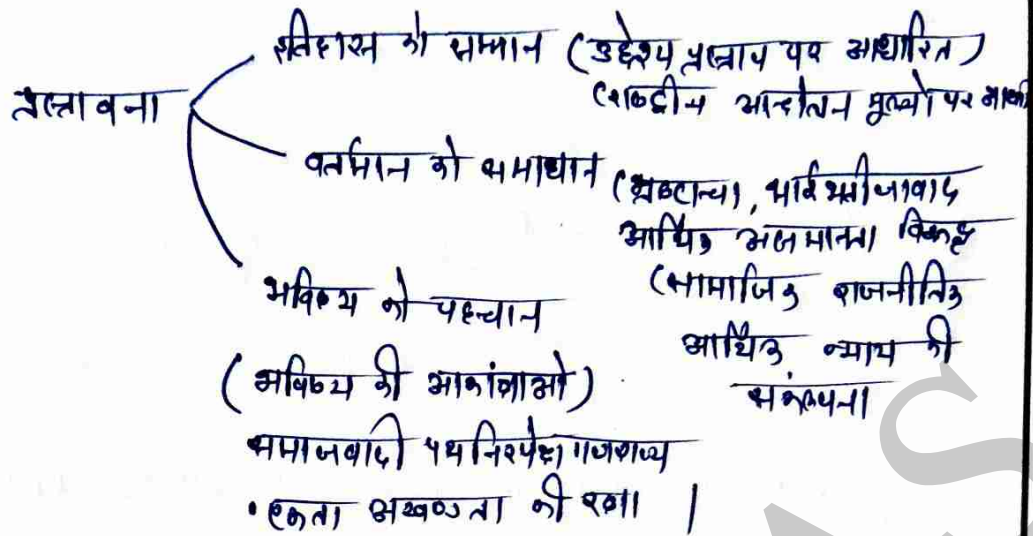 प्रस्तावना
इतिहास को सम्मान (उद्देश्य प्रस्ताव पर आधारित)
(राष्ट्रीय आन्दोलन मूल्यों पर
वर्तमान को समाधान (भ्रष्टाचा, भाई भतीजावाद
आर्थिक असमानता विरुद्ध
(सामाजिक राजनीतिक
आर्थिक न्याय की
संकल्पना
भविष्य को पहचान
(भविष्य की आकांक्षाओ)
समाजवादी पंथनिरपेक्ष गणराज्य
• एकता अखण्डता की रक्षा |